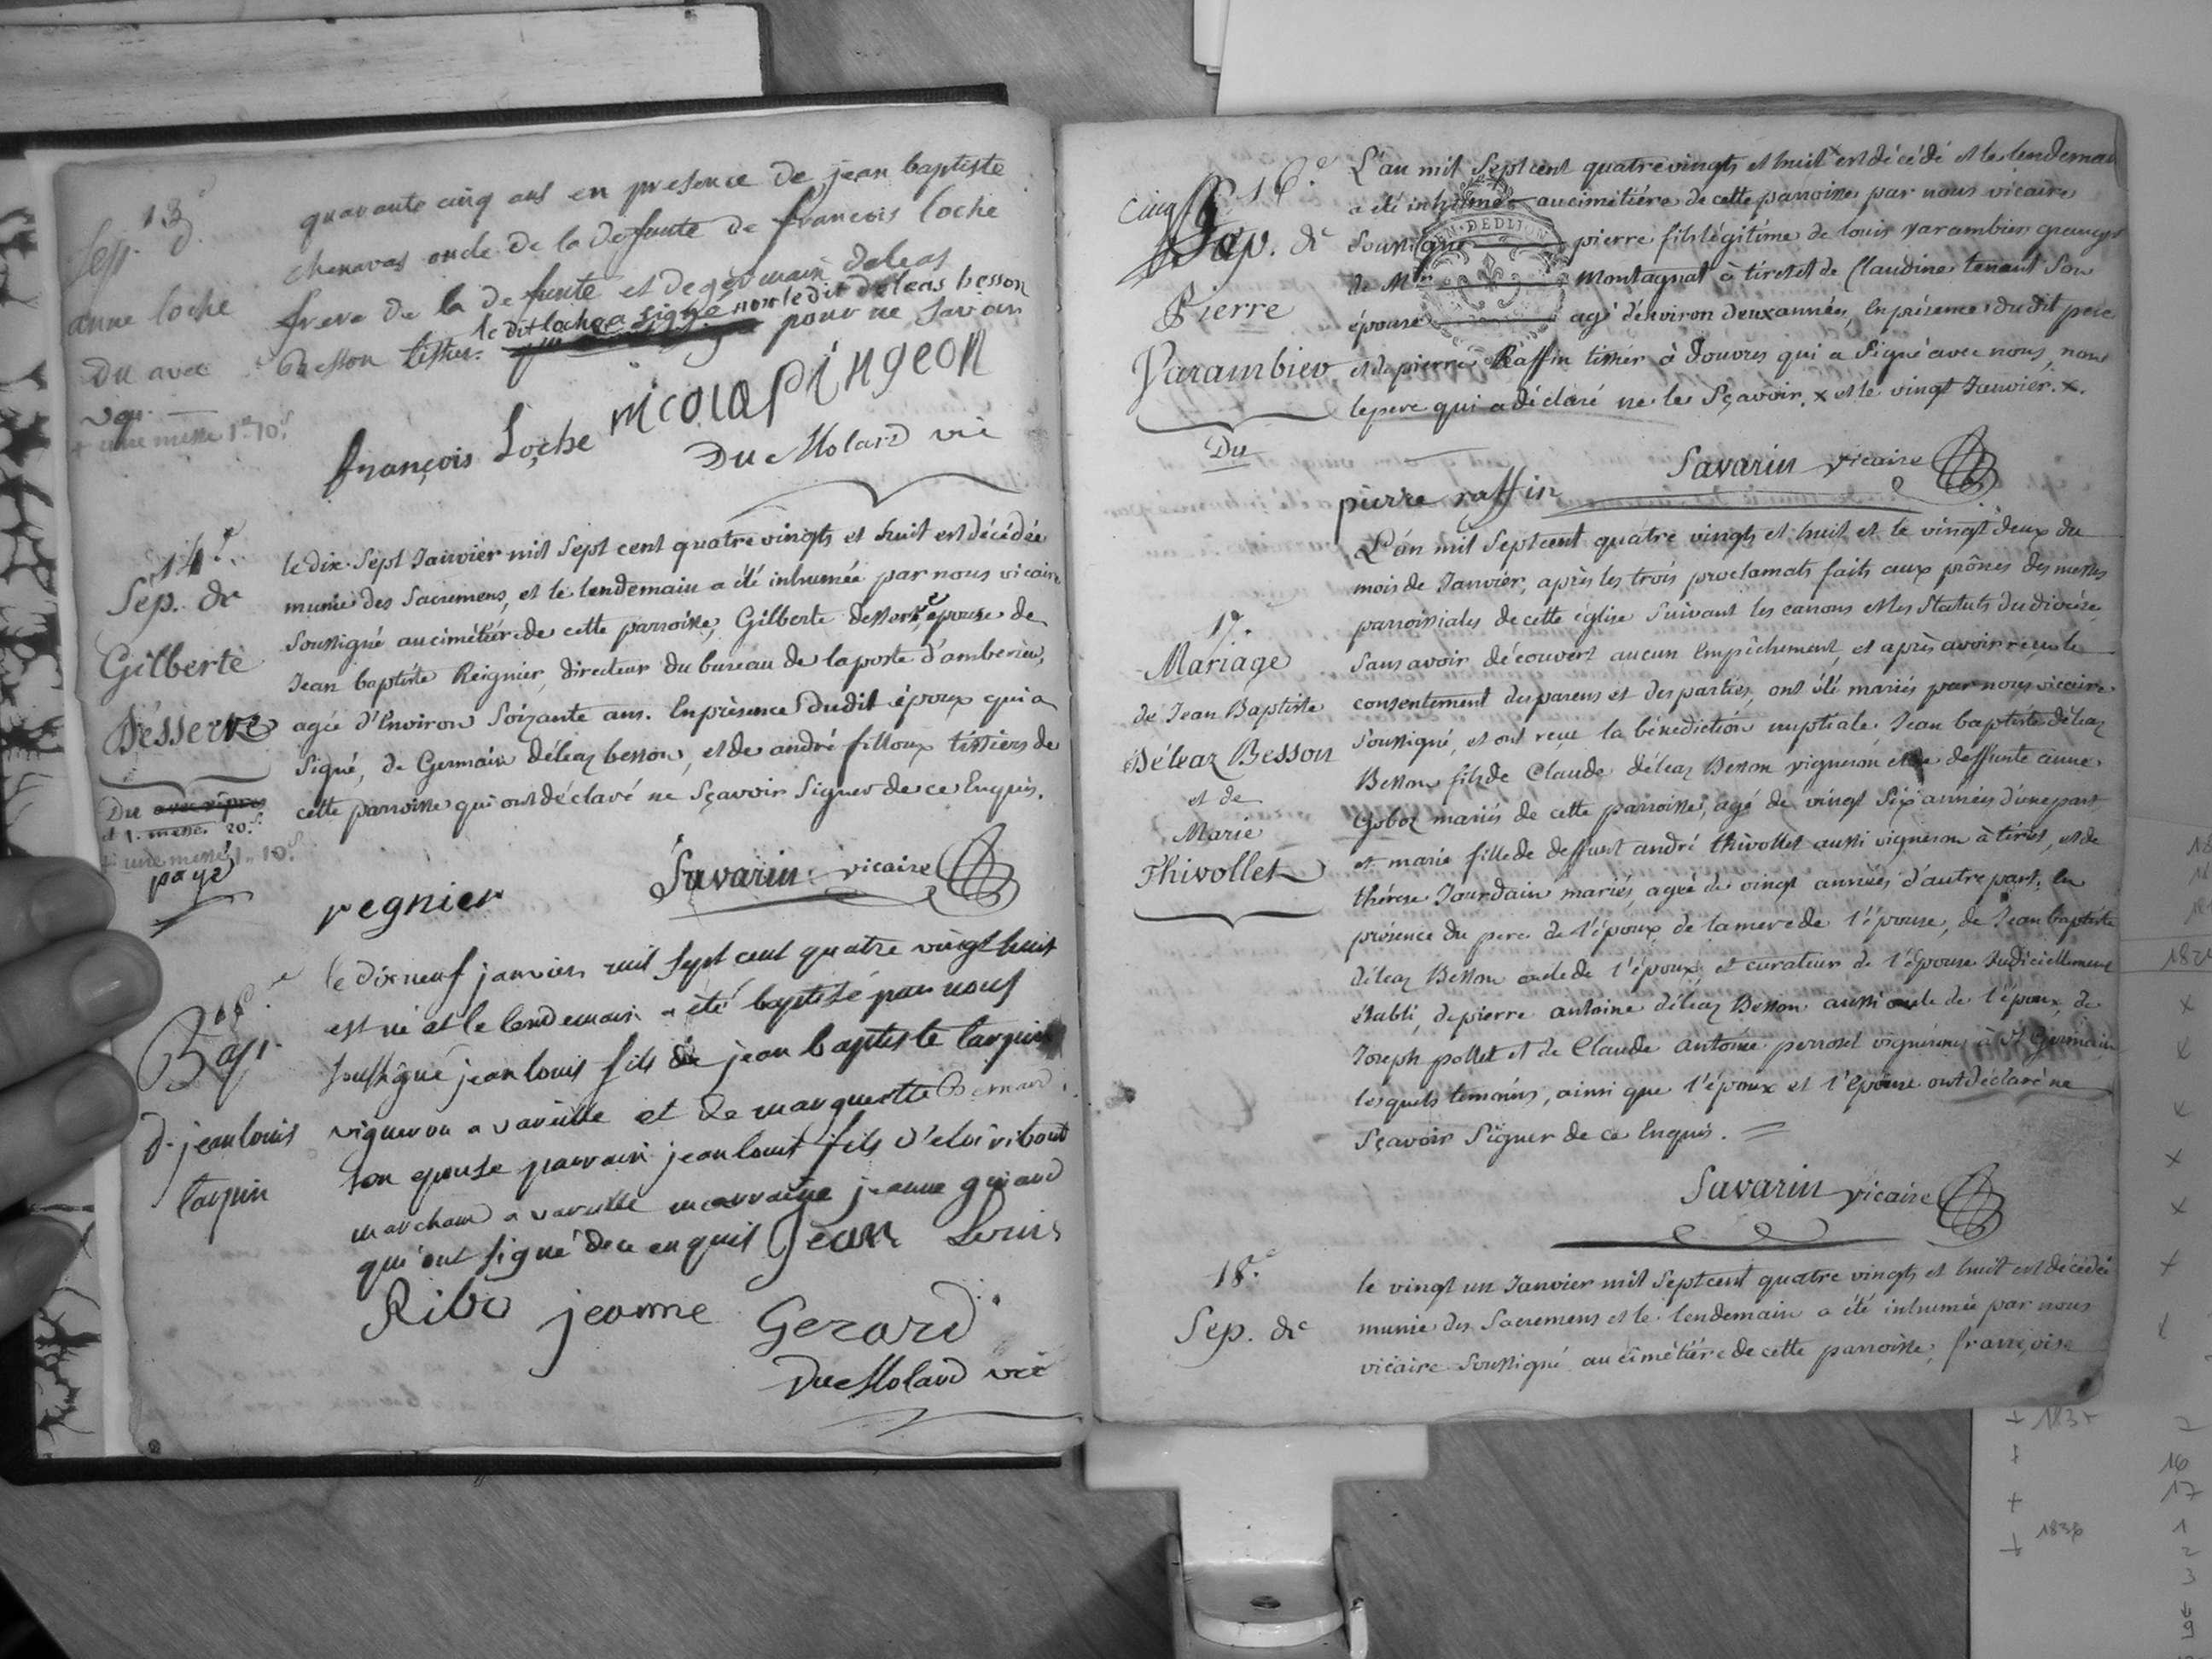 13.e
Sep. d.
anne loche
Du avec
vep.
+ une messe 1lt 10s
quarante cinq ans en presence de jean baptiste
chenavas oncle de la defunte de françois loche
frere de la defunte et de germain deleas
besson tissier. le dit loche a signé non le dit deleas besson
pour ne savoir
nicolas pingeon
françois Loche
Du Molard vic
14.e
Sep. de
Gilberte
Désserve
Du avec vêpres
et 1. messe. 20.s
+ une messe 1.. 10.s
payé
le dix-sept Janvier mil sept cent quatre vingts et huit est décédée
munie des Sacremens, et le lendemain a été inhumée par nous vicaire
soussigné au cimetière de cette parroisse, Gilberte desserve, épouse de
Jean baptiste Reignier, directeur du bureau de la poste d'amberieu,
agée d'Environ Soixante ans. En présence dudit époux qui a
signé, de Germain déléaz besson, et de andré filloux tissiers de
cette parroisse qui ont déclaré ne sçavoir signer de ce Enquis.
regnier
Savarin vicaire
15.e
Bap.
d. jean louis
tarpin
le dix neuf janvier mil sept cent quatre vingt huit
est né et le lendemain a été baptisé par nous
soussigné jean louis fils de jean baptiste tarpin
vigneron a vareille et de marguerite Bernard
son epouse parrain jean louis fils d'eloi ribout
marchand a vareille marraine jeanne girard
qui ont signé de ce enquis Jean Louis
Ribo jeanne Gerard
Du Molard vic
cinq
16.e
Sep. de
Pierre
Varambier
Du
L'an mil Sept cent quatre vingts et huit x est décédé et le lendemain
a été inhumé au cimitière de cette parroisse par nous vicaire
Soussigné pierre fils légitime de louis varambier granger
de Mr Montagnat à tiret et de Claudine tenant Son
épouse agé d'environ deux années, En présence dudit pere
et de pierre Raffin tissier à Douvres qui a Signé avec nous, non
le pere qui a déclaré ne le Sçavoir. x et le vingt Janvier. x.
Savarin vicaire
pierre raffin
17.e
Mariage
de Jean Baptiste
Déléaz Besson
et de
Marie
Thivollet
L'an mil Sept cent quatre vingts et huit et le vingt deux du
mois de Janvier, après les trois proclamats faits aux prônes des messes
parroissiales de cette église Suivant les canons et les Statuts du diocése,
Sans avoir découvert aucun Empêchement, et après avoir reçu le
consentement des parens et des parties, ont été mariés par nous vicaire
Soussigné, et ont reçu la bénediction nuptiale, Jean baptiste déléaz
Besson fils de Claude déléaz Besson vigneron et de deffunte anne
Goboz mariés de cette parroisse, agé de vingt Six années d'une part
et marie fille de deffunt andré thivollet aussi vigneron à tiret, et de
thérese Jourdain mariés, agée de vingt années d'autre part. En
présence du pere de l'époux, de la mere de l'épouse, de Jean baptiste
déléaz Besson oncle de l'époux, et curateur de l'épouse Judiciellement
établi, de pierre antoine déléaz Besson aussi oncle de l'époux, de
Joseph pollet et de Claude antoine perrozet vignerons à St Germain
lesquels temoins, ainsi que l'époux et l'épouse ont déclaré ne
Sçavoir Signer de ce Enquis. =
Savarin vicaire
18.e
Sep. de
le vingt un Janvier mil Sept cent quatre vingts et huit est décédée
munie des Sacremens et le lendemain a été inhumée par nous
vicaire Soussigné au cimétière de cette parroisse, françoise
1838
16
17
1
2
3